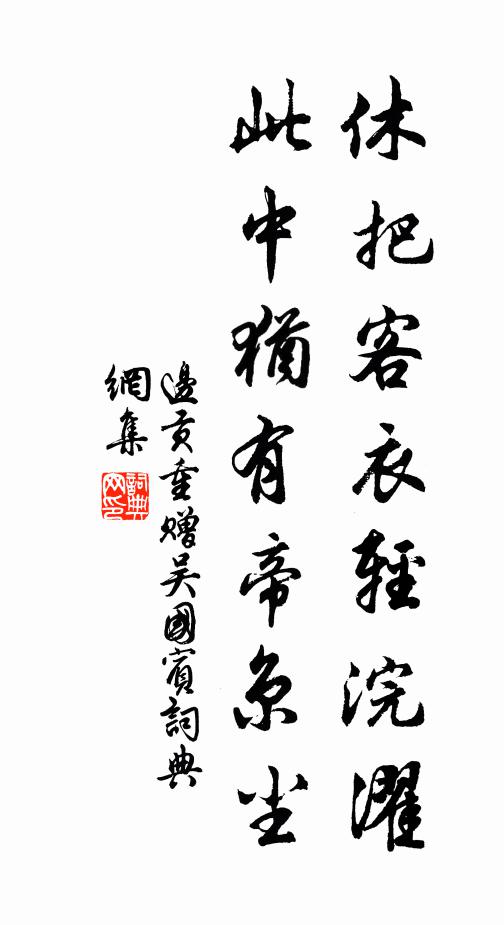 休把客衣輕浣濯
此中猶有帝京尘
邊貢重贈吴國賓詞典
網集
詞典
网印